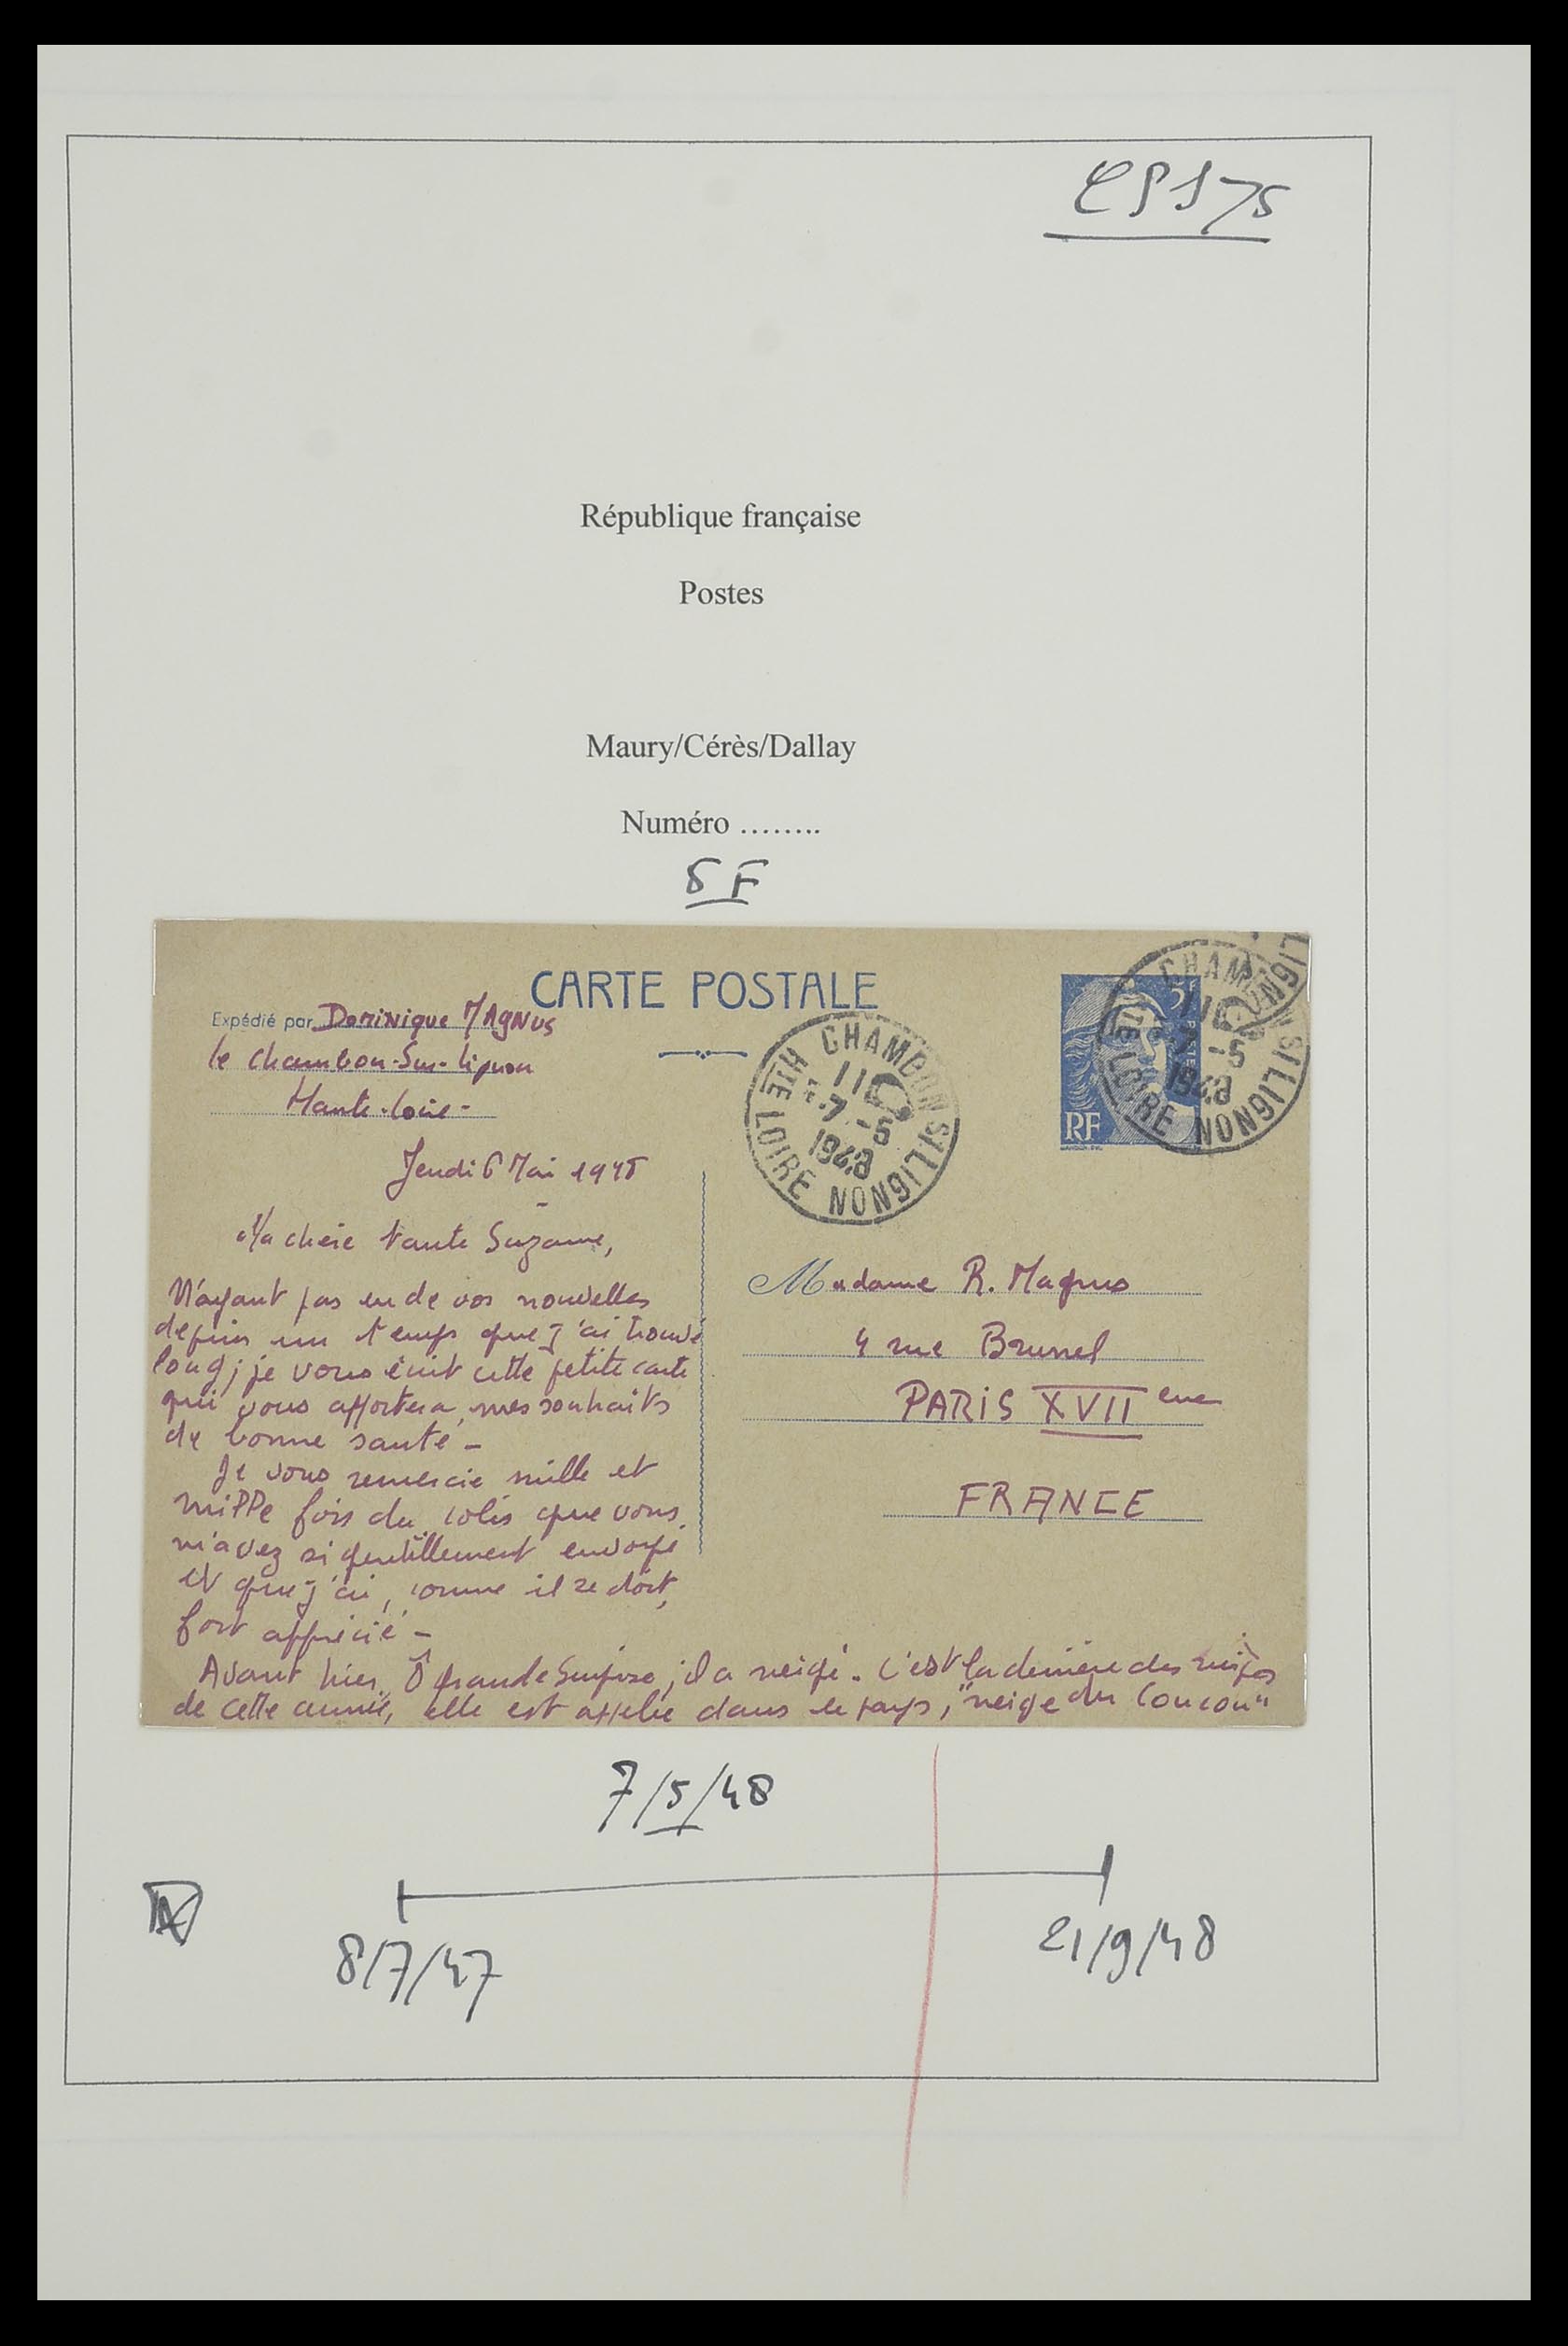 CP1 75
République française
Postes
Maury/Cérès/Dallay
Numéro ........
5F
CARTE POSTALE
Expédié par Dominique MAgNus
le Chambon-Sur-Lignon
Haute-Loire-
Jeudi 6 Mai 1948
Ma chère tante Suzanne,
N'ayant pas eu de vos nouvelles
depuis un temps que j'ai trouvé
long; je vous écrit cette petite carte
qui vous apportera mes souhaits
de bonne santé -
Je vous remercie mille et
mille fois du colis que vous
m'avez si gentillement envoyé
et que j'ai, comme il se doit,
fort apprécié -
Avant hier, Ô grande Surprise, il a neigé. C'est la dernière des neiges
de cette année, elle est appelée dans le pays, "neige du Coucou"
CHAMBON S/LIGNON
HTE LOIRE
11H
7 -5
1948
5F
POSTES
RF
CHAMBON S/LIGNON
HTE LOIRE
11
-5
1948
LIGNON
Madame R. Magnus
4 rue Brunel
PARIS XVII eme
FRANCE
7/5/48
8/7/47
21/9/48